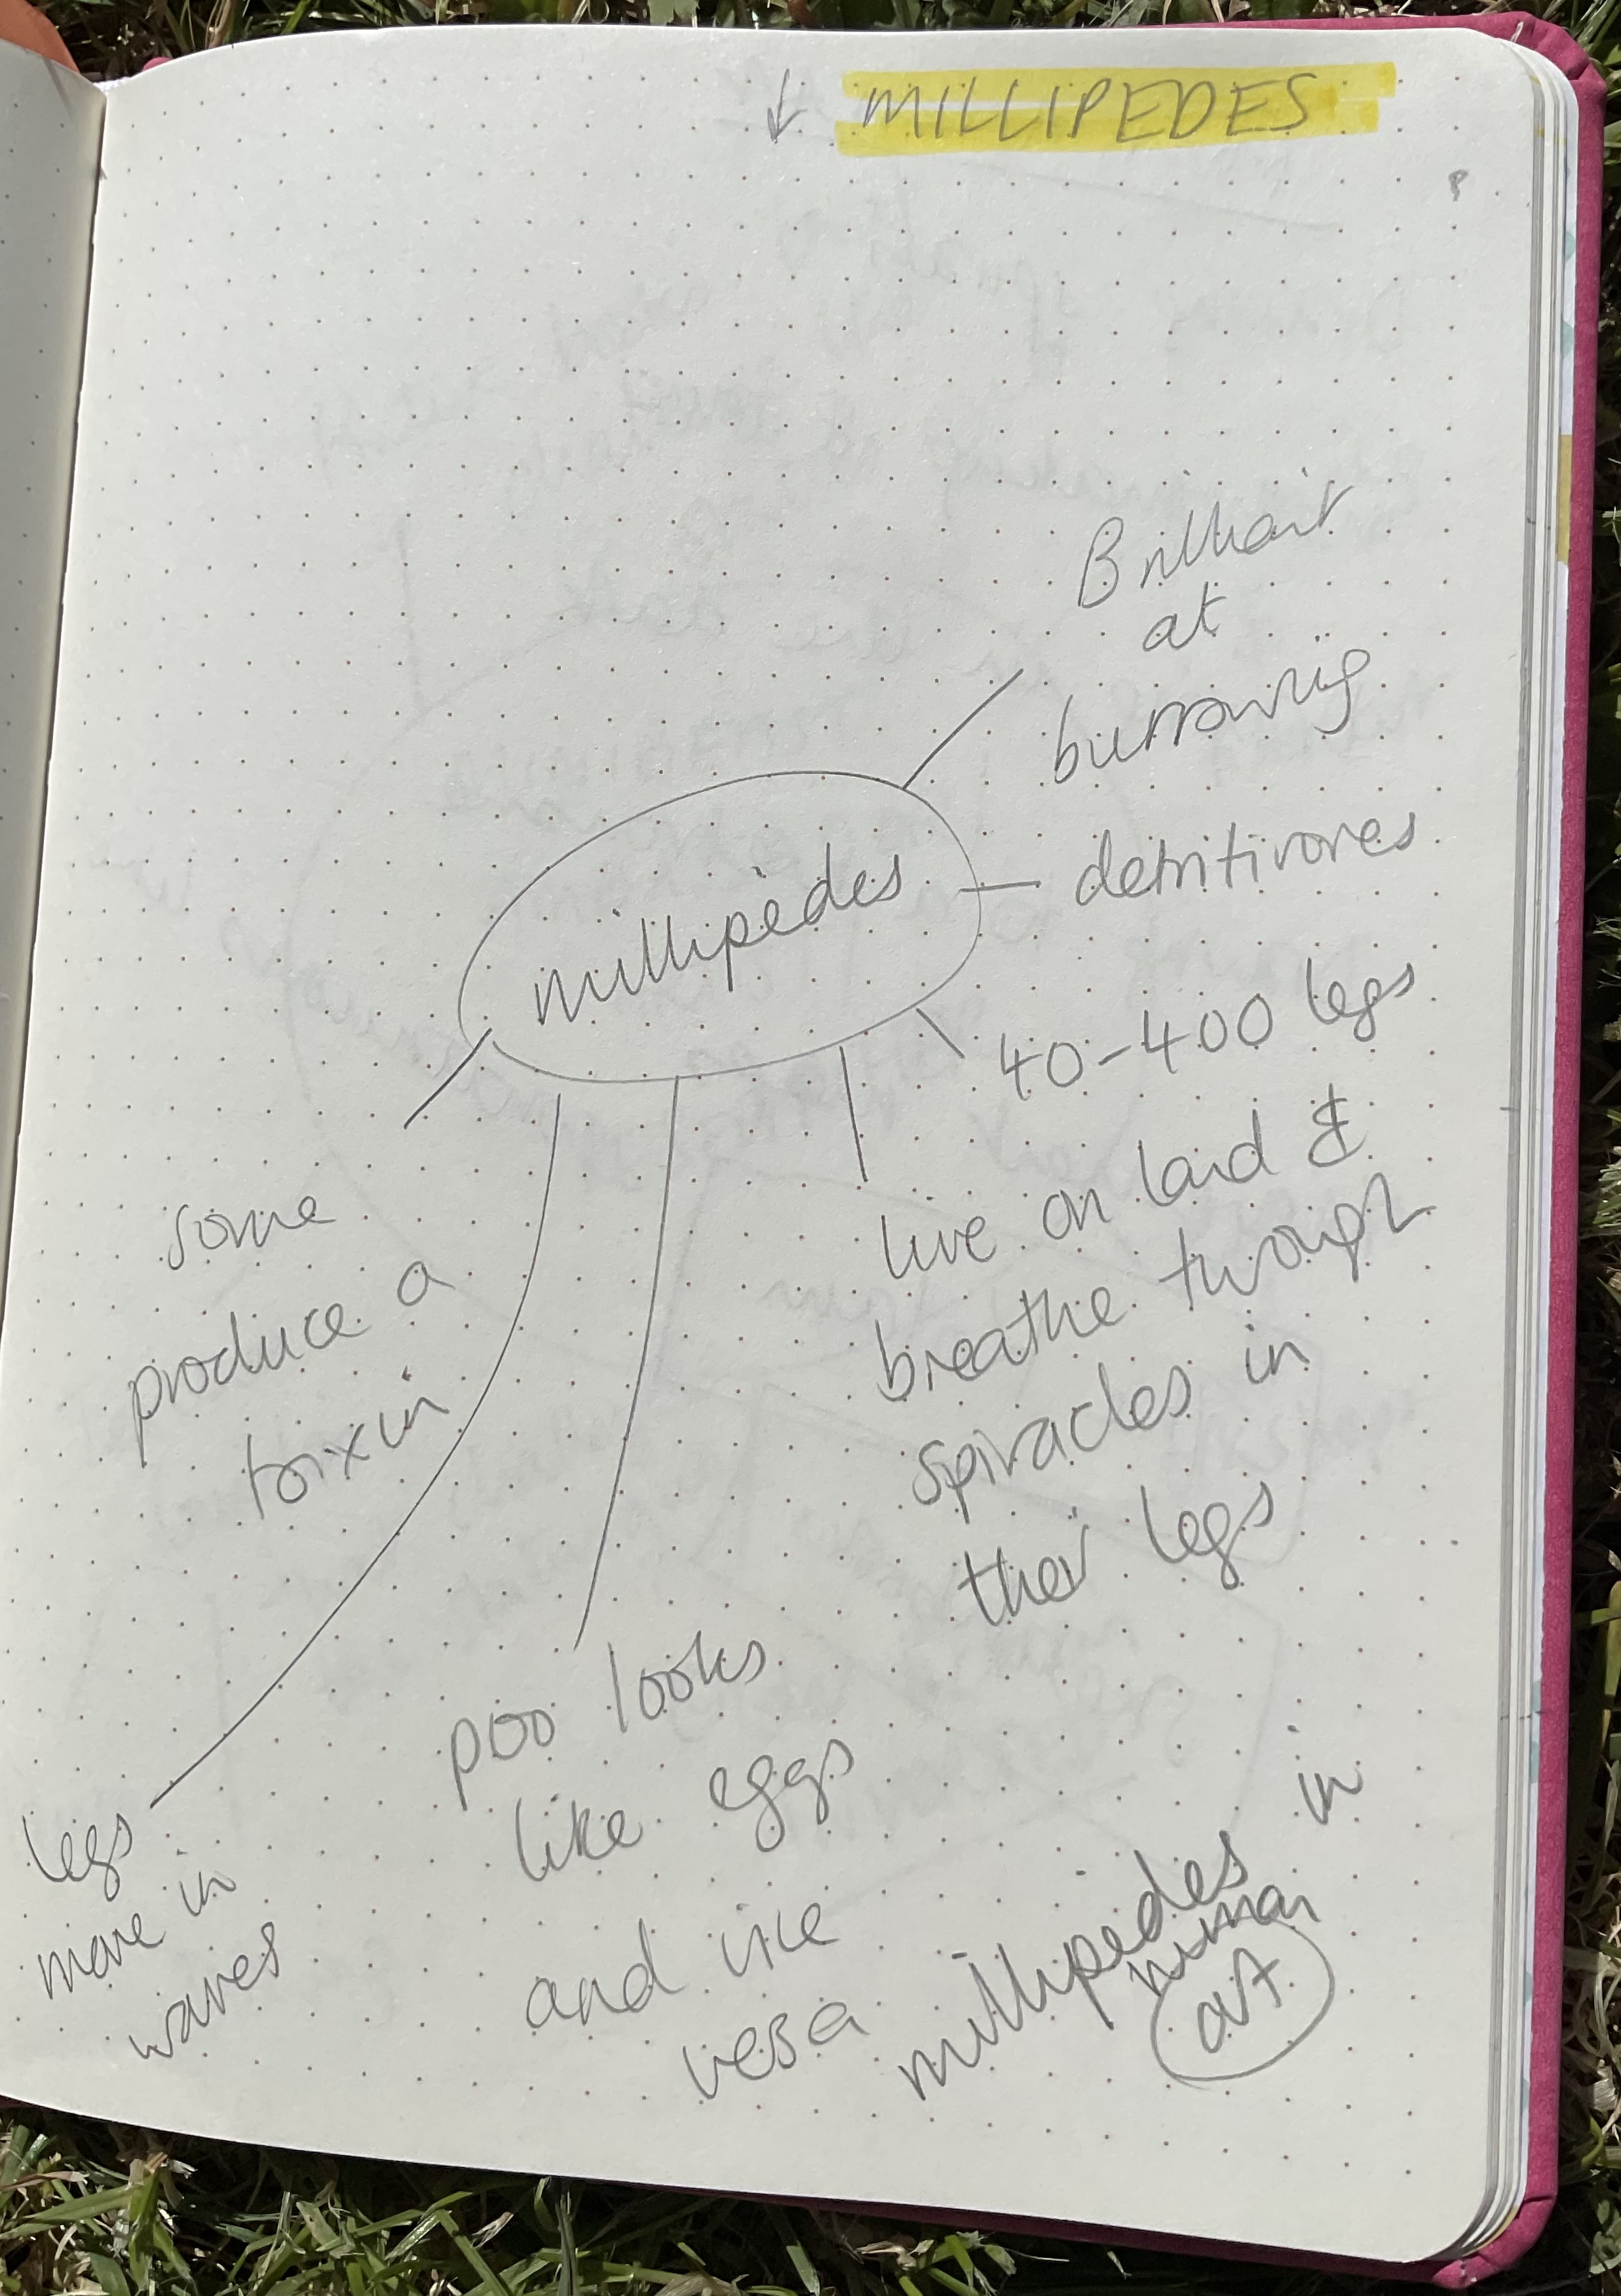 ↓ MILLIPEDES
Brilliant
at
burrowing
detritivores
40-400 legs
live on land &
breathe through
spiracles in
their legs
millipedes in
human
art
poo looks
like eggs
and vice
vesa
legs
move in
waves
some
produce a
toixin
millipedes